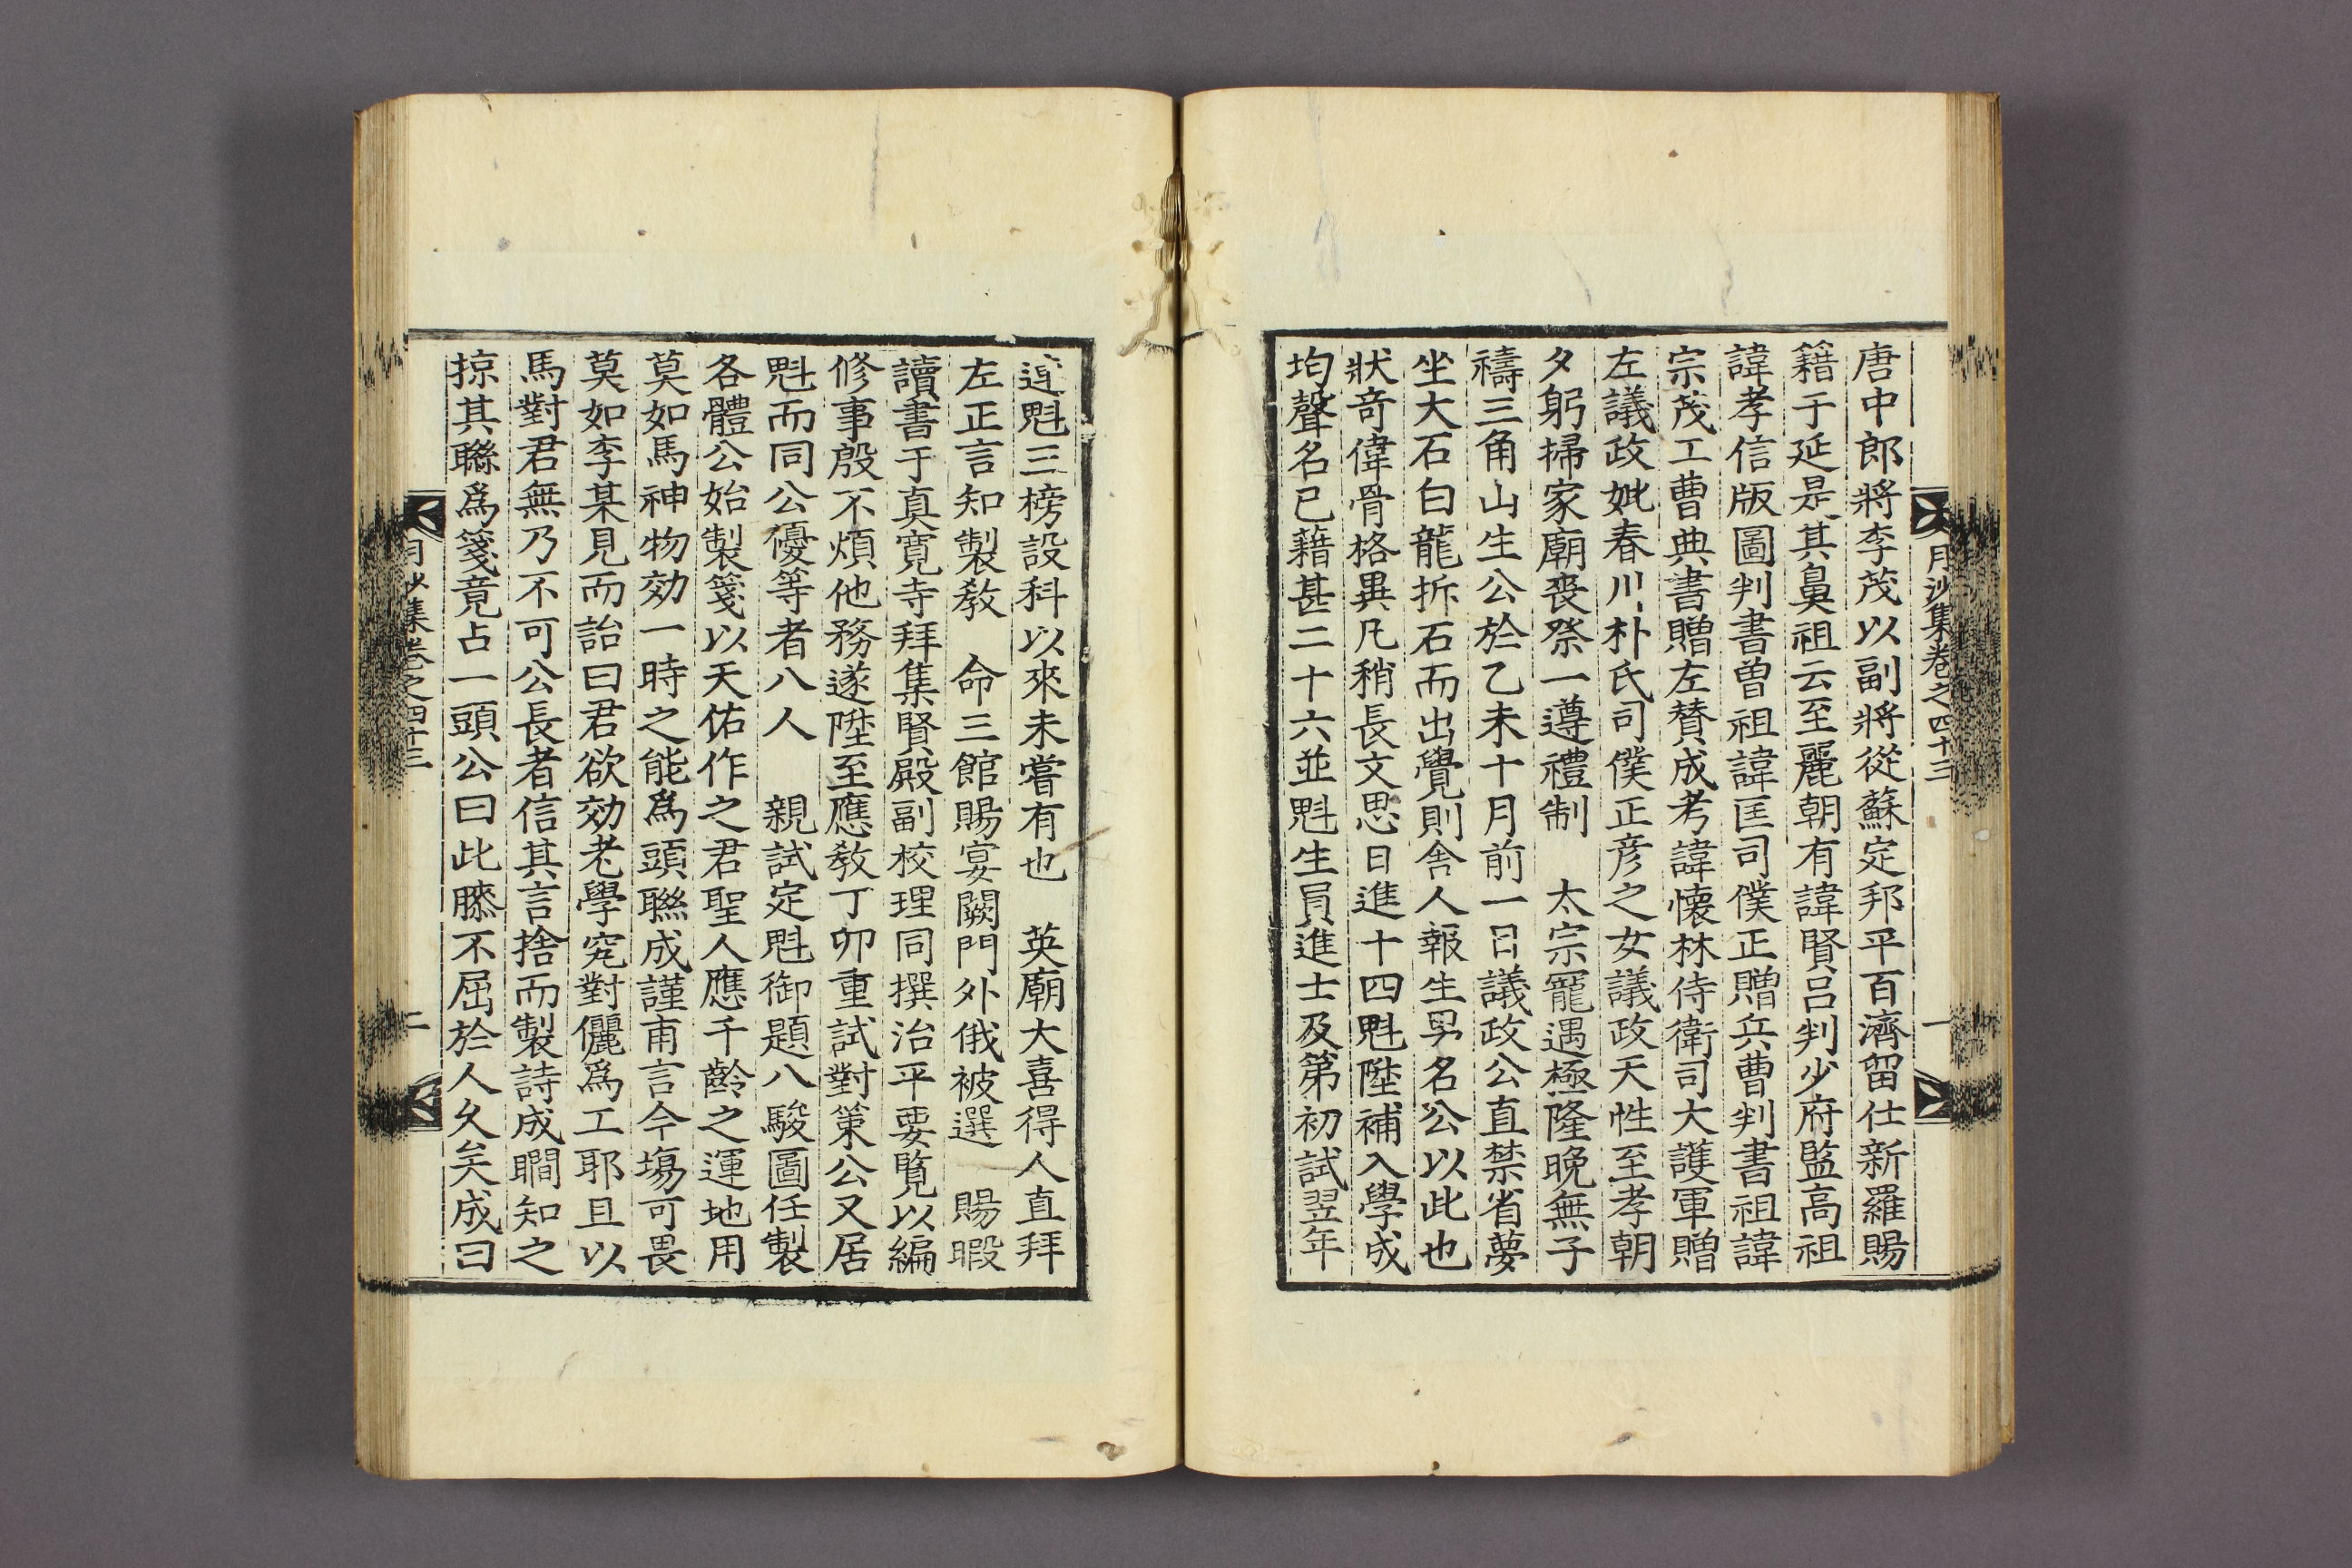 月沙集卷之四十三
一
唐中郎將李茂以副將從蘇定邦平百濟留仕新羅賜
籍于延是其鼻祖云至麗朝有諱賢呂判少府監高祖
諱孝信版圖判書曾祖諱匡司僕正贈兵曹判書祖諱
宗茂工曹典書贈左贊成考諱懷林侍衛司大護軍贈
左議政妣春川朴氏司僕正彦之女議政天性至孝朝
夕躬掃家廟喪祭一遵禮制　太宗寵遇極隆晚無子
禱三角山生公於乙未十月前一日議政公直禁省夢
坐大石白龍拆石而出覺則舍人報生男名公以此也
狀奇偉骨格異凡稍長文思日進十四魁陞補入學成
均聲名已藉甚二十六並魁生員進士及第初試翌年
魁三榜設科以來未嘗有也　英廟大喜得人直拜
左正言知製敎　命三館賜宴闕門外俄被選　賜暇
讀書于真寬寺拜集賢殿副校理同撰治平要覽以編
修事殷不煩他務遂陞至應敎丁卯重試對策公又居
魁而同公優等者八人　親試定魁御題八駿圖任製
各體公始製箋以天佑作之君聖人應千齡之運地用
莫如馬神物効一時之能爲頭聯成謹甫言今塲可畏
莫如李某見而詒曰君欲効老學究對儷爲工耶且以
馬對君無乃不可公長者信其言捨而製詩成瞯知之
掠其聯爲箋竟占一頭公曰此膝不屈於人久矣成曰
月沙集卷之四十三
二